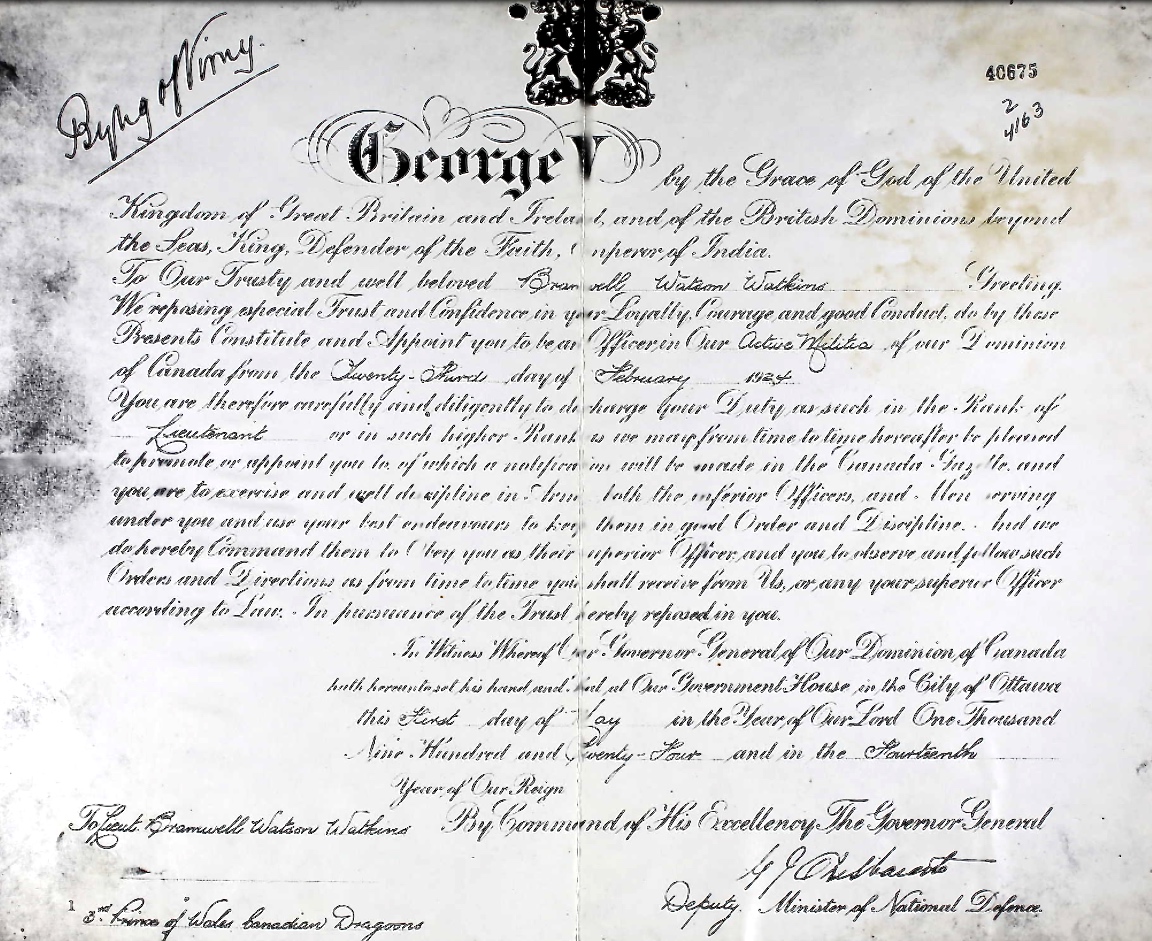 Byng of Vimy.
40675
2
4163
George V by the Grace of God of the United
Kingdom of Great Britain and Ireland, and of the British Dominions beyond
the Seas, King, Defender of the Faith, Emperor of India.
To Our Trusty and well beloved Bramwell Watson Watkins Greeting.
We reposing especial Trust and Confidence in your Loyalty, Courage and good Conduct, do by these
Presents Constitute and Appoint you to be an Officer in Our Active Militia of our Dominion
of Canada from the Twenty-Third day of February 1924
You are therefore carefully and diligently to discharge your Duty as such in the Rank of
Lieutenant or in such higher Rank as we may from time to time hereafter be pleased
to promote or appoint you to, of which a notification will be made in the Canada Gazette, and
you are to exercise and well discipline in Arms both the inferior Officers, and Men serving
under you and use your best endeavours to keep them in good Order and Discipline. And we
do hereby Command them to Obey you as their superior Officer, and you to observe and follow such
Orders and Directions as from time to time you shall receive from Us, or any your superior Officer
according to Law. In pursuance of the Trust hereby reposed in you.
In Witness Whereof Our Governor General of Our Dominion of Canada
hath hereunto set his hand and Seal at Our Government House in the City of Ottawa
this First day of May in the Year of Our Lord One Thousand
Nine Hundred and Twenty-Four and in the Fourteenth
Year of Our Reign
To Lieut. Bramwell Watson Watkins By Command of His Excellency The Governor General
G J Desbarats
Deputy Minister of National Defence.
1
3rd Prince of Wales Canadian Dragoons